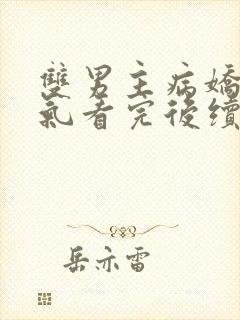 雙男主病嬌
氣看完後續
岳亦雷